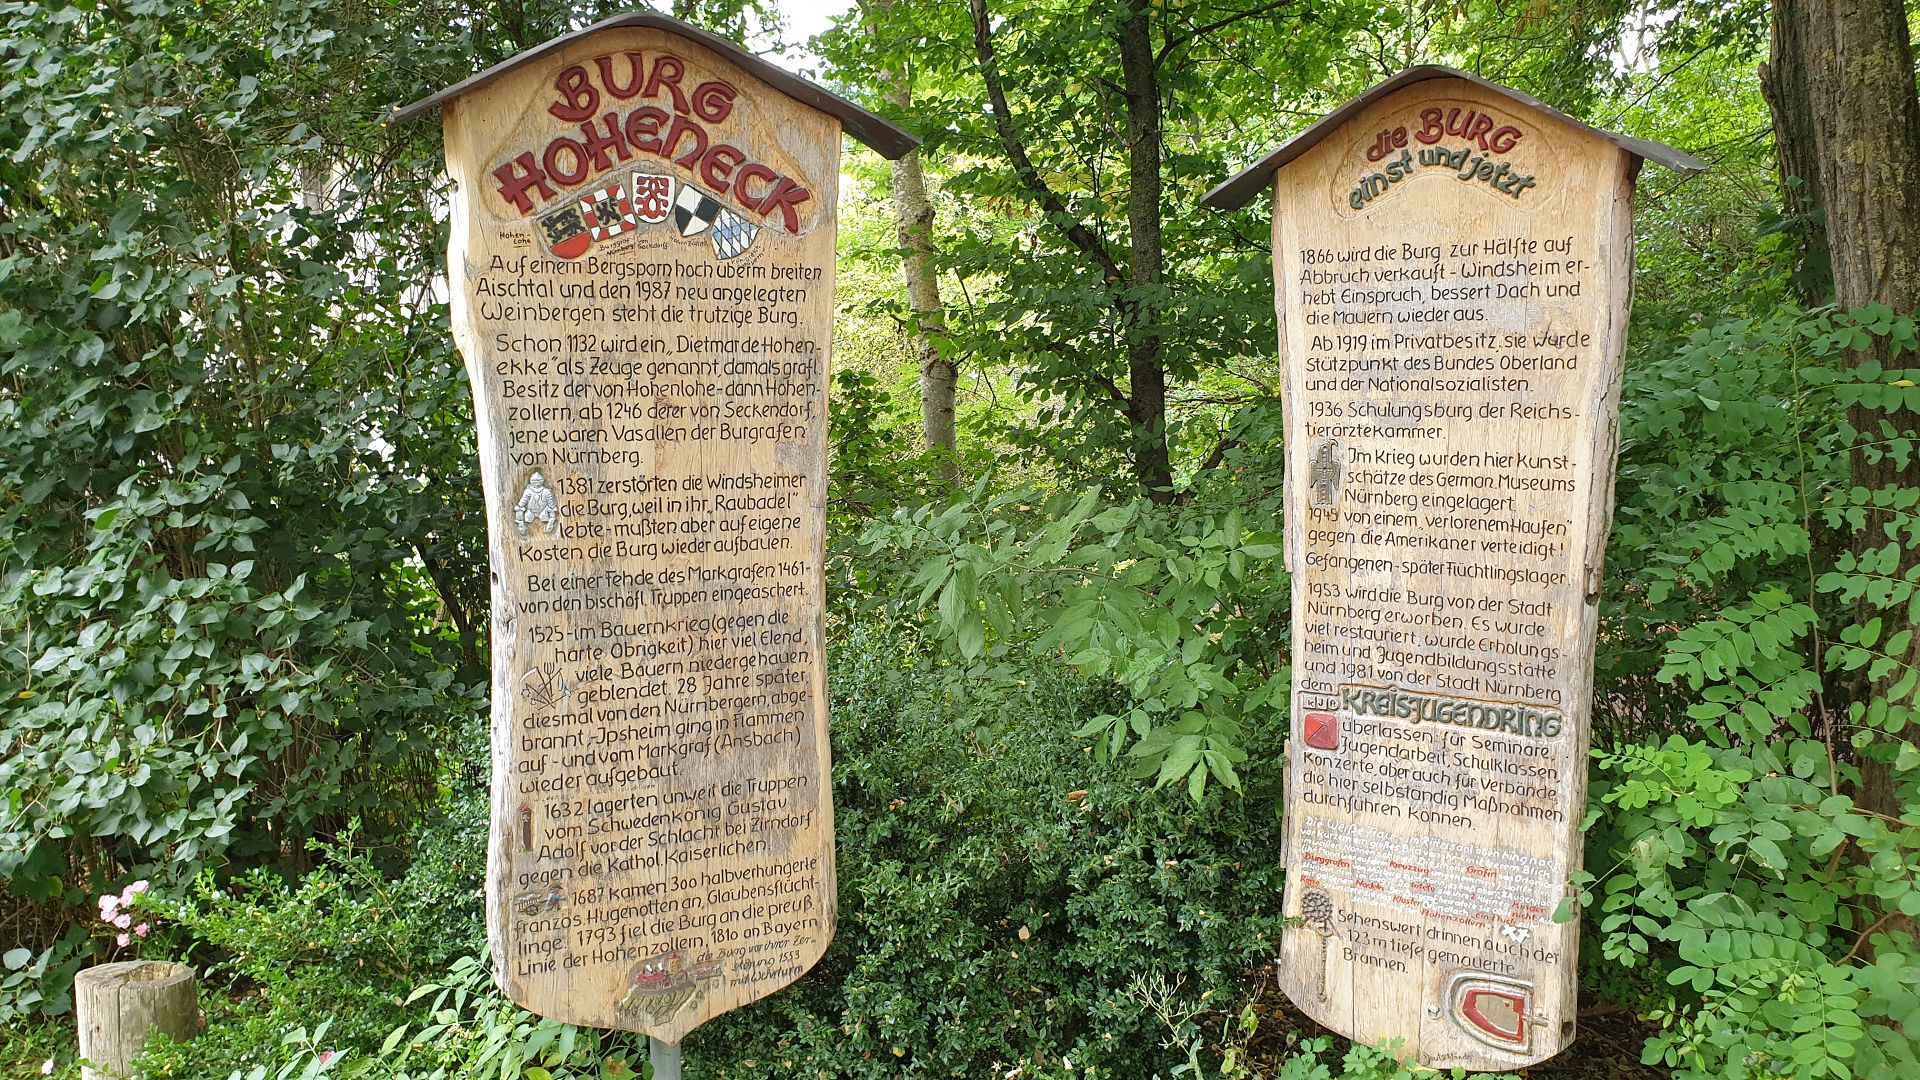 BURG
HOHENECK
Hohen-
Lohe
Burggraf
Nürnberg
von
Seckdorff
Hohenzollern
Auf einem Bergsporn hoch überm breiten
Aischtal und den 1987 neu angelegten
Weinbergen steht die trutzige Burg.
Schon 1132 wird ein „Dietmar de Hohen-
ekke" als Zeuge genannt, damals gräfl.
Besitz der von Hohenlohe - dann Hohen-
zollern, ab 1246 derer von Seckendorf,
jene waren Vasallen der Burgrafen
von Nürnberg.
1381 zerstörten die Windsheimer
die Burg, weil in ihr „Raubadel"
lebte - mußten aber auf eigene
Kosten die Burg wieder aufbauen.
Bei einer Fehde des Markgrafen 1461-
von den bischöfl. Truppen eingeäschert.
1525 - im Bauernkrieg (gegen die
harte Obrigkeit) hier viel Elend,
viele Bauern niedergehauen,
geblendet. 28 Jahre später,
diesmal von den Nürnbergern, abge-
brannt, - Jpsheim ging in Flammen
auf - und vom Markgraf (Ansbach)
wieder aufgebaut.
1632 lagerten unweit die Truppen
vom Schwedenkönig Gustav
Adolf vor der Schlacht bei Zirndorf
gegen die Kathol. Kaiserlichen.
1687 kamen 300 halbverhungerte
französ. Hugenotten an, Glaubensflücht-
linge. 1793 fiel die Burg an die preuß.
Linie der Hohenzollern, 1810 an Bayern
die Burg vor ihrer Zer-
störung 1553
mit Wehrturm
die BURG
einst und jetzt
1866 wird die Burg zur Hälfte auf
Abbruch verkauft - Windsheim er-
hebt Einspruch, bessert Dach und
die Mauern wieder aus.
Ab 1919 im Privatbesitz. sie wurde
Stützpunkt des Bundes Oberland
und der Nationalsozialisten.
1936 Schulungsburg der Reichs-
tierärztekammer.
Jm Krieg wurden hier Kunst-
schätze des German. Museums
Nürnberg eingelagert.
1945 von einem „verlorenem Haufen"
gegen die Amerikaner verteidigt!
Gefangenen - später Flüchtlingslager
1953 wird die Burg von der Stadt
Nürnberg erworben. Es wurde
viel restauriert, wurde Erholungs-
heim und Jugendbildungsstätte
und 1981 von der Stadt Nürnberg
dem KREISJUGENDRING
KJR
überlassen: für Seminare,
Jugendarbeit, Schulklassen,
Konzerte, aber auch für Verbände,
die hier selbständig Maßnahmen
durchführen können.
Die Weiße Frau - im Rittersaal oben hing noch
vor kurzem ein großes Bild von ihr - mit
Burggrafen Kreuzzug Gräfin von Orlamünde
Nadeln tötete 2 Kinder
Kloster
Hohenzollern
Sehenswert drinnen auch der
123 m tiefe gemauerte
Brunnen.